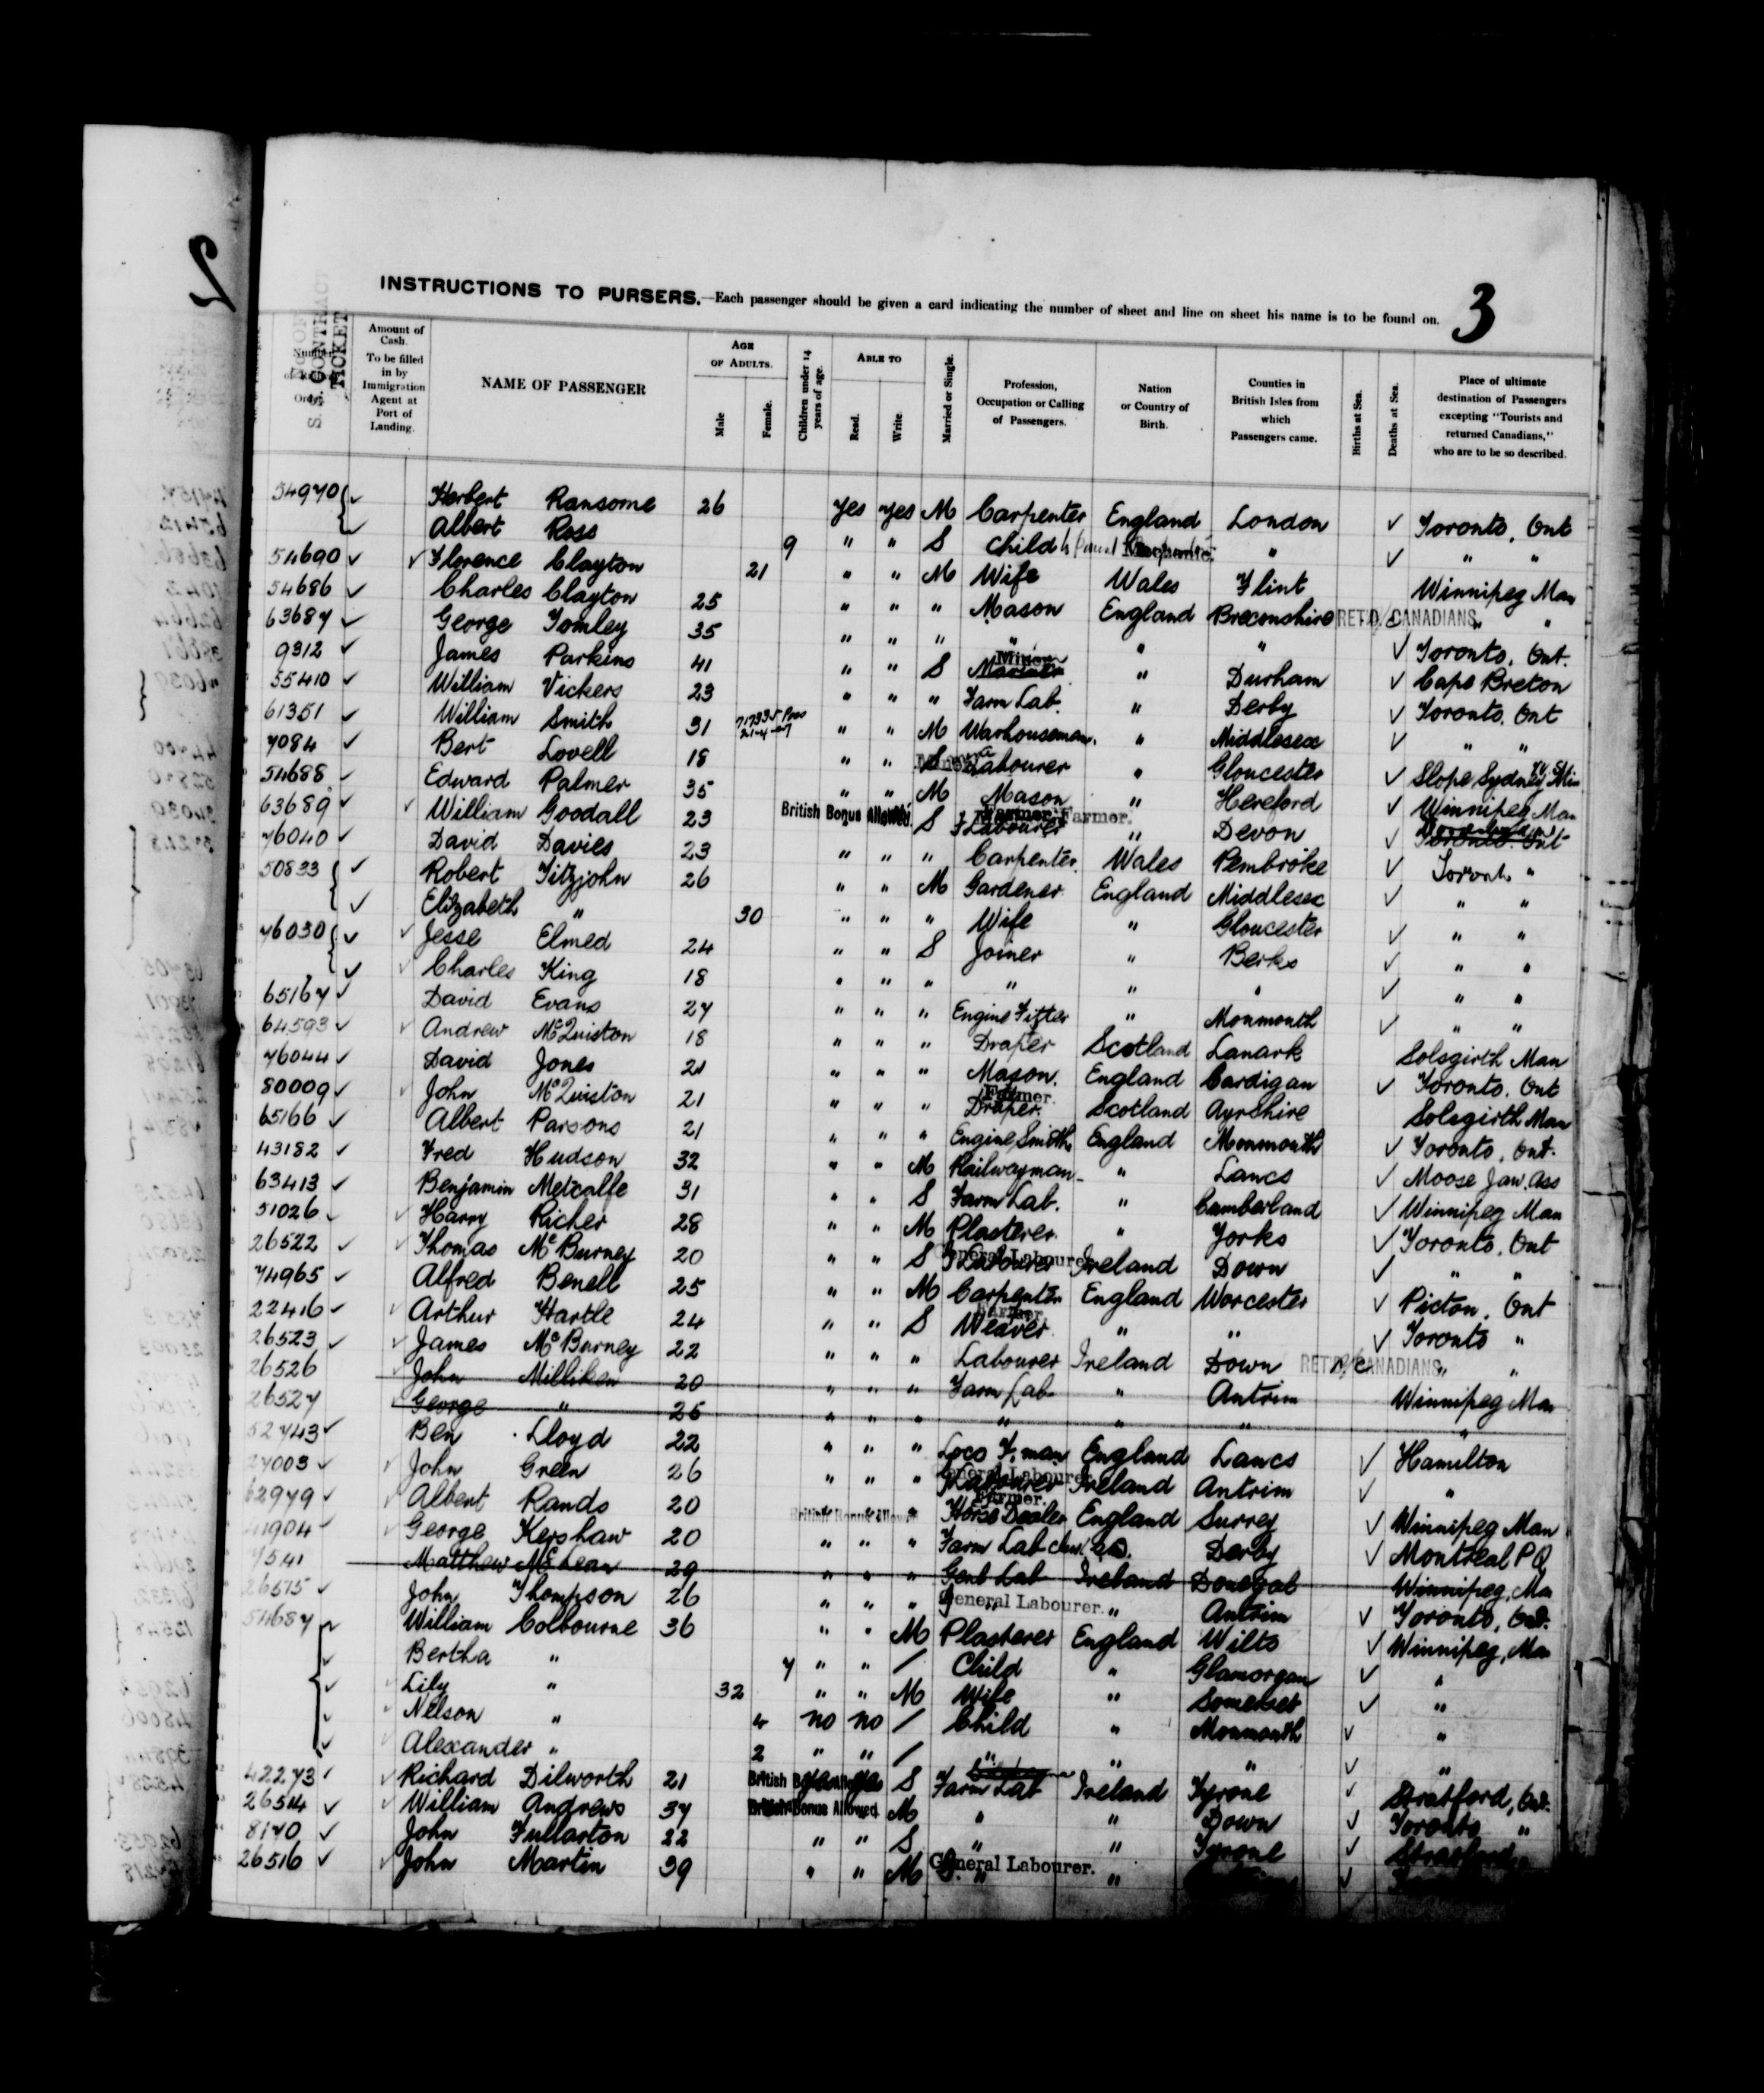 2
3
INSTRUCTIONS TO PURSERS.—Each passenger should be given a card indicating the number of sheet and line on sheet his name is to be found on.
S.S. CONTRACT TICKET
Amount of Cash. To be filled in by Immigration Agent at Port of Landing.
NAME OF PASSENGER
AGE OF ADULTS.
Male
Female.
Children under 14 years of age.
ABLE TO
Read.
Write.
Married or Single.
Profession, Occupation or Calling of Passengers.
Nation or Country of Birth.
Counties in British Isles from which Passengers came.
Births at Sea.
Deaths at Sea.
Place of ultimate destination of Passengers excepting "Tourists and returned Canadians," who are to be so described.
54970 { ✓ Herbert Ransome 26 Yes Yes M Carpenter England London ✓ Toronto, Ont
✓ Albert Ross 9 " " S Child " ✓ " "
54690 ✓ ✓ Florence Clayton 21 " " M Wife Wales Flint Winnipeg Man
54686 ✓ Charles Clayton 25 " " " Mason England Breconshire RETD. CANADIANS " "
63687 ✓ George Tomley 35 " " " " " " ✓ Toronto. Ont.
9312 ✓ James Parkins 41 " " S Miner " Durham ✓ Cape Breton
55410 ✓ William Vickers 23 " " " Farm Lab. " Derby ✓ Toronto. Ont
61351 ✓ William Smith 31 " " M Warhouseman. " Middlesex ✓ " "
7084 ✓ Bert Lovell 18 " " S Labourer " Gloucester ✓ Slope Sydney
54688 ✓ Edward Palmer 35 " " M Mason " Hereford ✓ Winnipeg Man
63689 ✓ ✓ William Goodall 23 British Bonus Allowed. S Labourer Farmer. " Devon ✓ Toronto. Ont
76040 ✓ David Davies 23 " " " Carpenter. Wales Pembroke ✓ Toronto "
50833 { ✓ Robert Fitzjohn 26 " " M Gardener England Middlesex ✓ " "
✓ Elizabeth " 30 " " " Wife " Gloucester ✓ " "
76030 { ✓ ✓ Jesse Elmed 24 " " S Joiner " Berks ✓ " "
✓ ✓ Charles King 18 " " " " " " ✓ " "
65167 ✓ David Evans 27 " " " Engine Fitter " Monmouth ✓ " "
64593 ✓ ✓ Andrew McQuiston 18 " " " Draper Scotland Lanark Solsgirth Man
76044 ✓ David Jones 21 " " " Mason. England Cardigan ✓ Toronto. Ont
80009 ✓ ✓ John McQuiston 21 " " " Draper. Farmer. Scotland Ayrshire Solsgirth Man
65166 ✓ Albert Parsons 21 " " " Engine Smith England Monmouth ✓ Toronto, Ont.
43182 ✓ Fred Hudson 32 " " M Railwayman " Lancs ✓ Moose Jaw. Ass
63413 ✓ Benjamin Metcalfe 31 " " S Farm Lab. " Cumberland ✓ Winnipeg Man
51026 ✓ ✓ Harry Richer 28 " " M Plasterer. " Yorks ✓ Toronto. Ont
26522 ✓ ✓ Thomas McBurney 20 " " S Labourer General Labourer Ireland Down ✓ " "
74965 ✓ Alfred Benell 25 " " M Carpenter England Worcester ✓ Picton, Ont
22416 ✓ ✓ Arthur Hartle 24 " " S Weaver Farmer. " " ✓ Toronto "
26523 ✓ ✓ James McBurney 22 " " " Labourer Ireland Down RETD. CANADIANS " "
26526 John Milliken 20 " " " Farm Lab " Antrim Winnipeg Man
26527 George " 25 " " " " " " "
52743 ✓ Ben Lloyd 22 " " " Loco F. man England Lancs ✓ Hamilton
27003 ✓ ✓ John Green 26 " " " Labourer General Labourer Ireland Antrim ✓ "
62979 ✓ ✓ Albert Rands 20 British Bonus Allowed " Horse Dealer Farmer. England Surrey ✓ Winnipeg Man
41904 ✓ ✓ George Kershaw 20 " " " Farm Lab Derby ✓ Montreal P Q
7541 Matthew McLean 29 " " " Genl Lab Ireland Donegal Winnipeg, Man
26515 ✓ John Thompson 26 " " " General Labourer. " Antrim ✓ Toronto, Ont.
54687 { ✓ William Colbourne 36 " " M Plasterer England Wilts ✓ Winnipeg, Man
✓ Bertha " 7 " " / Child " Glamorgan ✓ "
✓ ✓ Lily " 32 " " M Wife " Somerset ✓ "
✓ ✓ Nelson " 4 no no / Child " Monmouth ✓ "
✓ ✓ Alexander " 2 " " / " " " ✓ "
42273 ✓ ✓ Richard Dilworth 21 British Bonus Allowed S Farm Lab Ireland Tyrone ✓ Stratford, Ont.
26514 ✓ ✓ William Andrews 37 British Bonus Allowed. M " " Down ✓ Toronto "
8170 ✓ John Fullarton 22 " " S " " Tyrone ✓ Stratford "
26516 ✓ ✓ John Martin 39 " " M General Labourer. " ✓